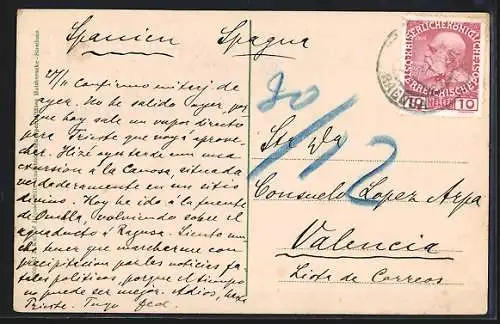 Spanien Spagna
27/11 Confirmo mi tarj. de
ayer. No he salido ayer, por
que hoy sale un vapor directo
para Trieste que voy á aprove-
char. Hizé ayer tarde una
excursión á la Canosa, situada
verdaderamente en un sitio
divino. Hoy he ido á la fuente
de Ombla, volviendo sobre el
aqueducto á Ragusa. Siento mu-
cho tener que marcharme con
precipitación por las noticias fa-
tales políticas, porque el tiempo
no puede ser mejor. Adios, hasta
Trieste. Tuyo
Sta Da
Consuelo Lopez Arpa
Valencia
Lista de Correos
20/12
KAISERLICHE KÖNIGLICHE
ÖSTERREICHISCHE
HELLER 10